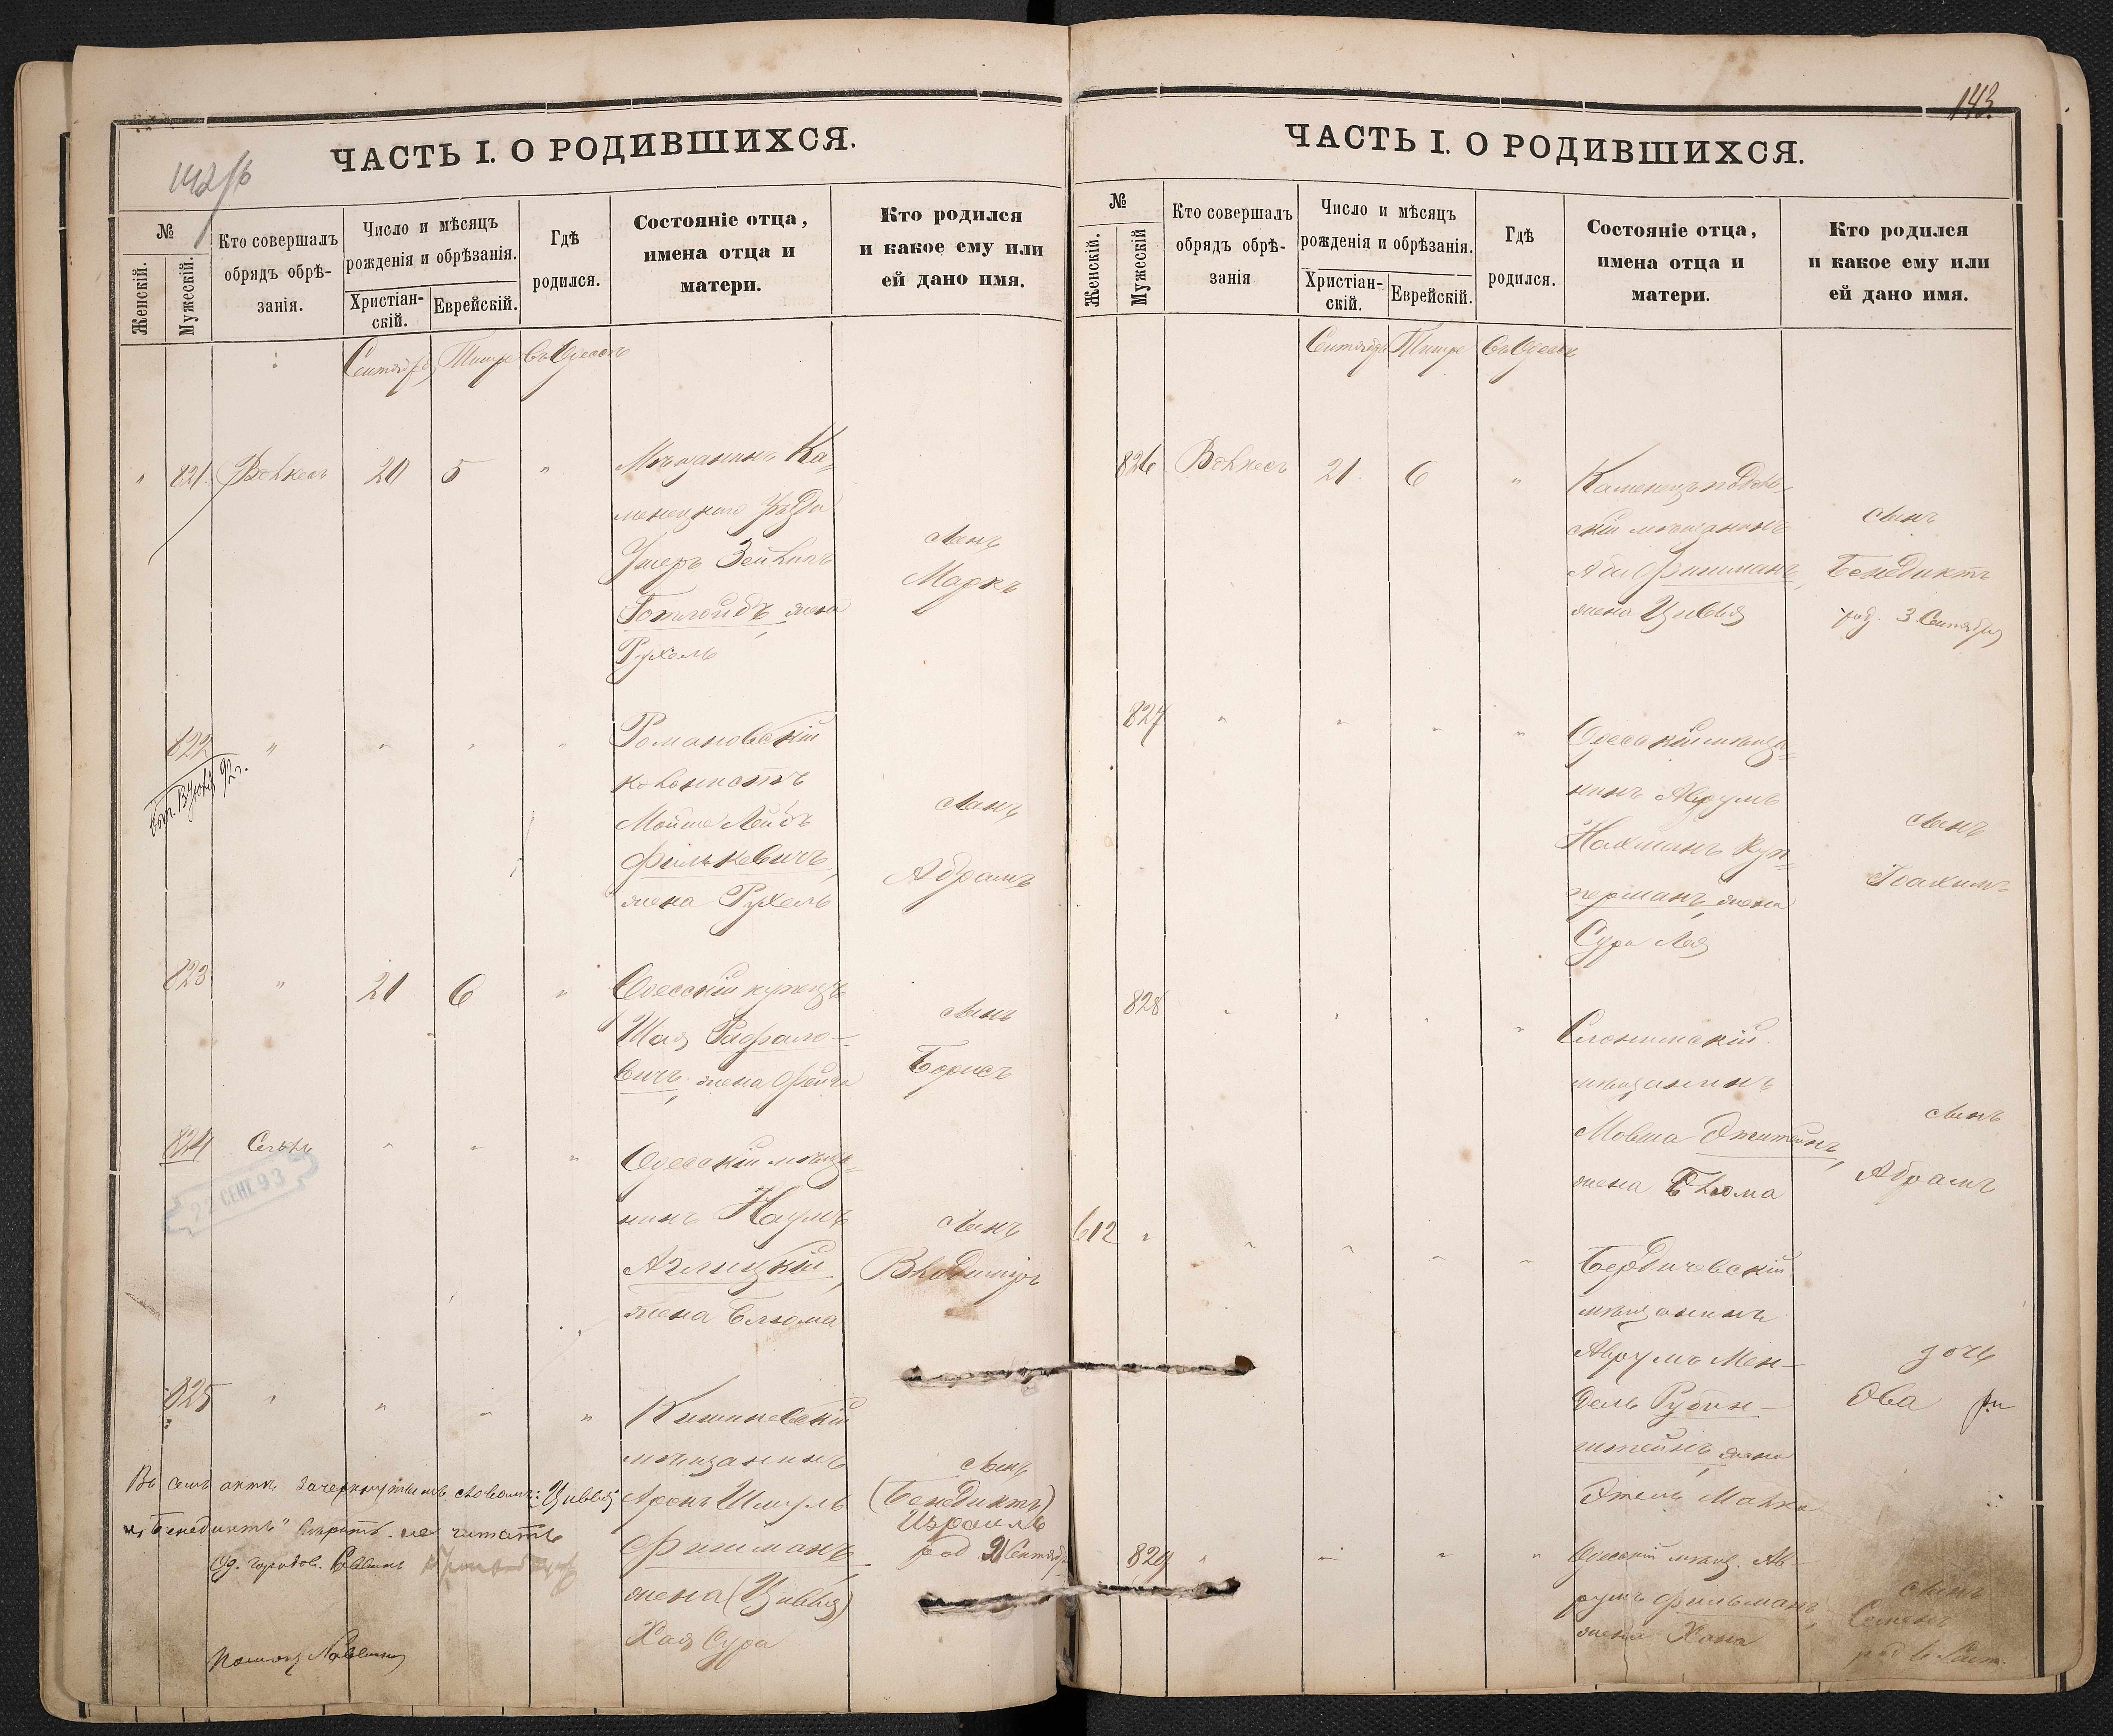 142/б
ЧАСТЬ I. О РОДИВШИХСЯ.
№
Женскій.
Мужескій.
Кто совершалъ
обрядъ обрѣ-
занія.
Число и мѣсяцъ
рожденія и обрѣзанія.
Христіан-
скій.
Еврейскій.
Гдѣ
родился.
Состояніе отца,
имена отца и
матери.
Кто родился
и какое ему или
ей дано имя.
Сентябрь Тишре Въ Одессѣ
" 821. 20 5 "
Мѣщанинъ Ка-
менецкаго Уѣзда
Ушеръ Зейликъ
жена
Рухель
сынъ
Маркъ
822 " " " "
92 г.
Романовскій
колонистъ
Мойше Лейбъ
Филькевичъ,
жена Рухель
сынъ
Абрамъ
823 " 21 6 "
Одесскій купецъ
Шая Рафало-
вичъ, жена Фейга
сынъ
Борисъ
824 " " "
22 СЕН. 93
Одесскій мѣща-
нинъ Наумъ
Аглицкій,
жена Блюма
сынъ
Владиміръ
825 " " " "
Кишиневскій
мѣщанинъ
Аронъ Шмуль
Фишманъ,
жена (Цивья)
Хая Сура
сынъ
(Бенедиктъ)
Израиль
род. Сентября
Въ семъ актѣ зачеркнутымъ словамъ: Цивья
и "Бенедиктъ" не читать
Од. городов. Раввинъ
143.
ЧАСТЬ I. О РОДИВШИХСЯ.
№
Женскій.
Мужескій
Кто совершалъ
обрядъ обрѣ-
занія
Число и мѣсяцъ
рожденія и обрѣзанія.
Христіан-
скій.
Еврейскій.
Гдѣ
родился.
Состояніе отца,
имена отца и
матери.
Кто родился
и какое ему или
ей дано имя.
Сентябрь Тишре Въ Одессѣ
826 21. 6 "
Каменецъ подоль-
скій мѣщанинъ
Аба Фишманъ,
жена Цивья
сынъ
Бенедиктъ
род. 3 Сентября
827 " " " "
Одесскій мѣща-
нинъ Аврумъ
Нахманъ Куп-
перманъ, жена
Сура Лея
сынъ
Іоахимъ
828 " " " "
Слонимскій
мѣщанинъ
Мовша Эпштейнъ,
жена Блюма
сынъ
Абрамъ
612 " " " " "
Бердичевскій
мѣщанинъ
Аврумъ Мен-
дель Рубин-
штейнъ, жена
Этель Малка
дочь
Эва
829 " " " "
Одесскій мѣщ. Ав-
румъ Фильманъ,
жена Хана
сынъ
Семенъ
род. Сент.